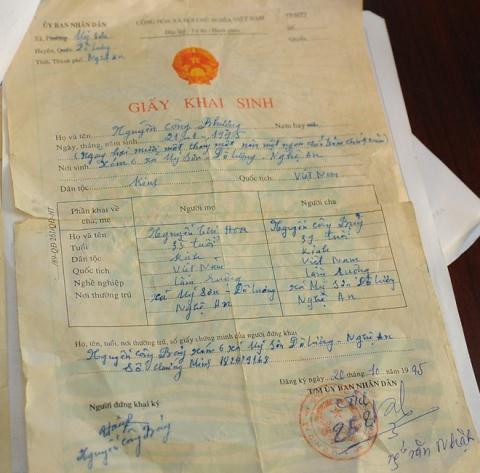 ỦY BAN NHÂN DÂN
Xã, Phường: Mỹ Sơn
Huyện, Quận: Đô Lương
Tỉnh, Thành phố: Nghệ An
CỘNG HÒA XÃ HỘI CHỦ NGHĨA VIỆT NAM
Độc lập - Tự do - Hạnh phúc
Số
Quyển
GIẤY KHAI SINH
Họ và tên Nguyễn Công Phượng Nam hay nữ
Ngày, tháng, năm sinh 21-1-1995
(Ngày hai mươi mốt tháng một năm một ngàn chín trăm chín lăm)
Nơi sinh Xóm 6 xã Mỹ Sơn - Đô Lương - Nghệ An
Dân tộc Kinh Quốc tịch Việt Nam
Phần khai về cha, mẹ Người mẹ Người cha
Họ và tên Nguyễn Thị Hoa Nguyễn Công Bảy
Tuổi 35 tuổi 37 tuổi
Dân tộc Kinh Kinh
Quốc tịch Việt Nam Việt Nam
Nghề nghiệp Làm ruộng Làm ruộng
Nơi thường trú xã Mỹ Sơn - Đô Lương xã Mỹ Sơn Đô Lương
Nghệ An Nghệ An
Họ, tên, tuổi, nơi thường trú, số giấy chứng minh của người đứng khai
Nguyễn Công Bảy Xóm 6 xã Mỹ Sơn Đô Lương - Nghệ An
Số chứng minh
Đăng ký ngày 20 tháng 10 năm 1995
T/M ỦY BAN NHÂN DÂN
Người đứng khai ký
Nguyễn Công Bảy